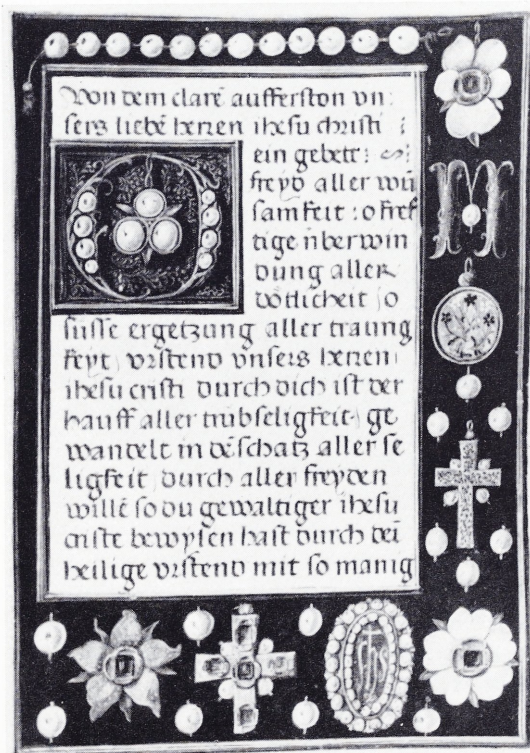 Von dem clarē aufferston vn:
sers liebē herren ihesu christi :
ein gebett:
O freyd aller wū
samkeit : o kref
tige v̈berwin
dung aller
dötlicheit / o
susse ergetzung aller traurig
keyt / vrstend vnsers herren
ihesu cristi durch dich ist der
hauff aller trübseligkeit / ge
wandelt in dē schatz aller se
ligkeit / durch aller freyden
willē so du gewaltiger ihesu
criste bewysen hast durch dei
heilige vrstend mit so manig
M
ihs